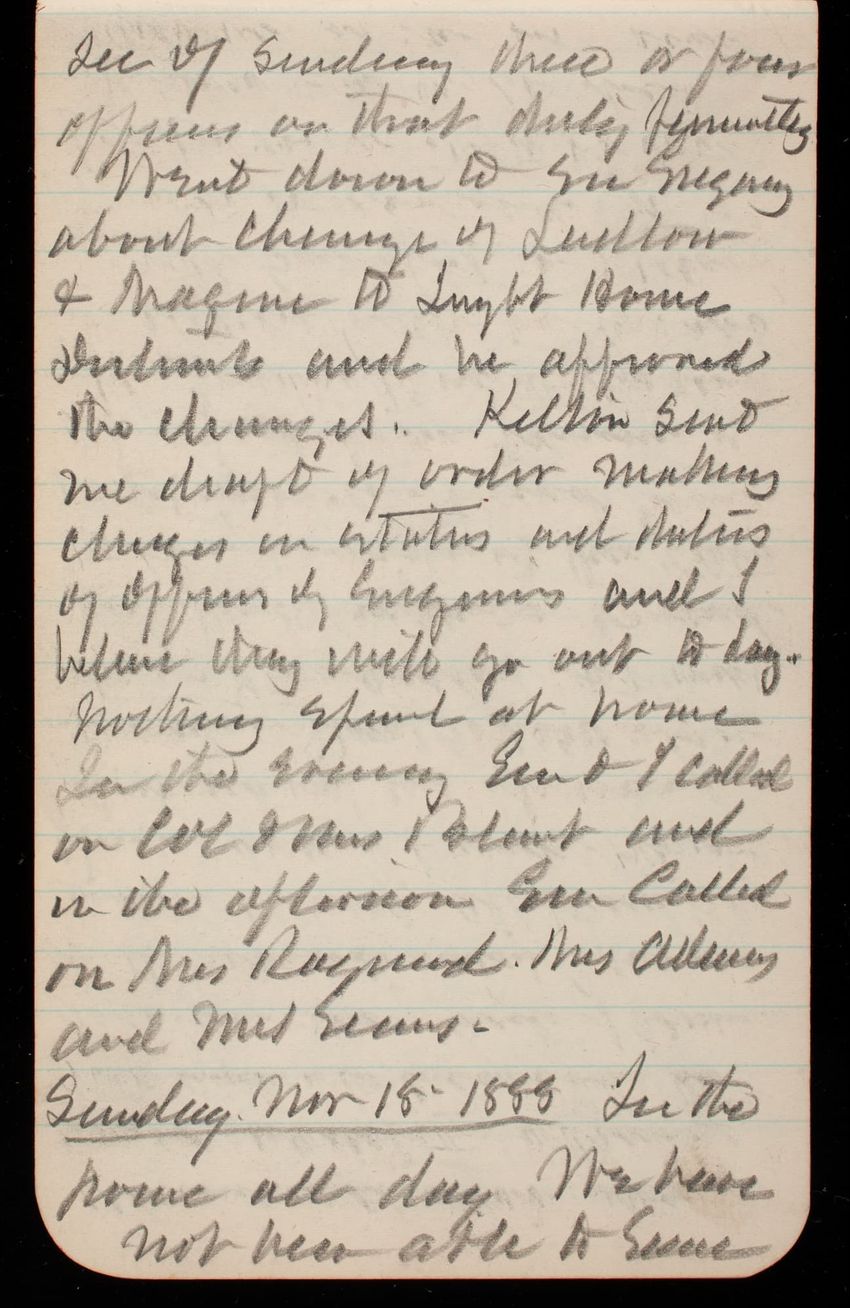 Sec of sending three or four
officers on that duty
Went down to see Gregory
about change of Ludlow
& Magune to Light House
Districts and he approved
the changes. Kelton sent
me draft of order making
changes in status and duties
of Officers of Engineers and I
believe they will go out to day.
Nothing special at home
In the evening Em & I called
on Col & Mrs Blunt and
in the afternoon Em Called
on Mrs Raymond. Mrs Adams
and Mrs Evans.
Sunday. Nov 18 - 1888 In the
house all day We have
not been able to